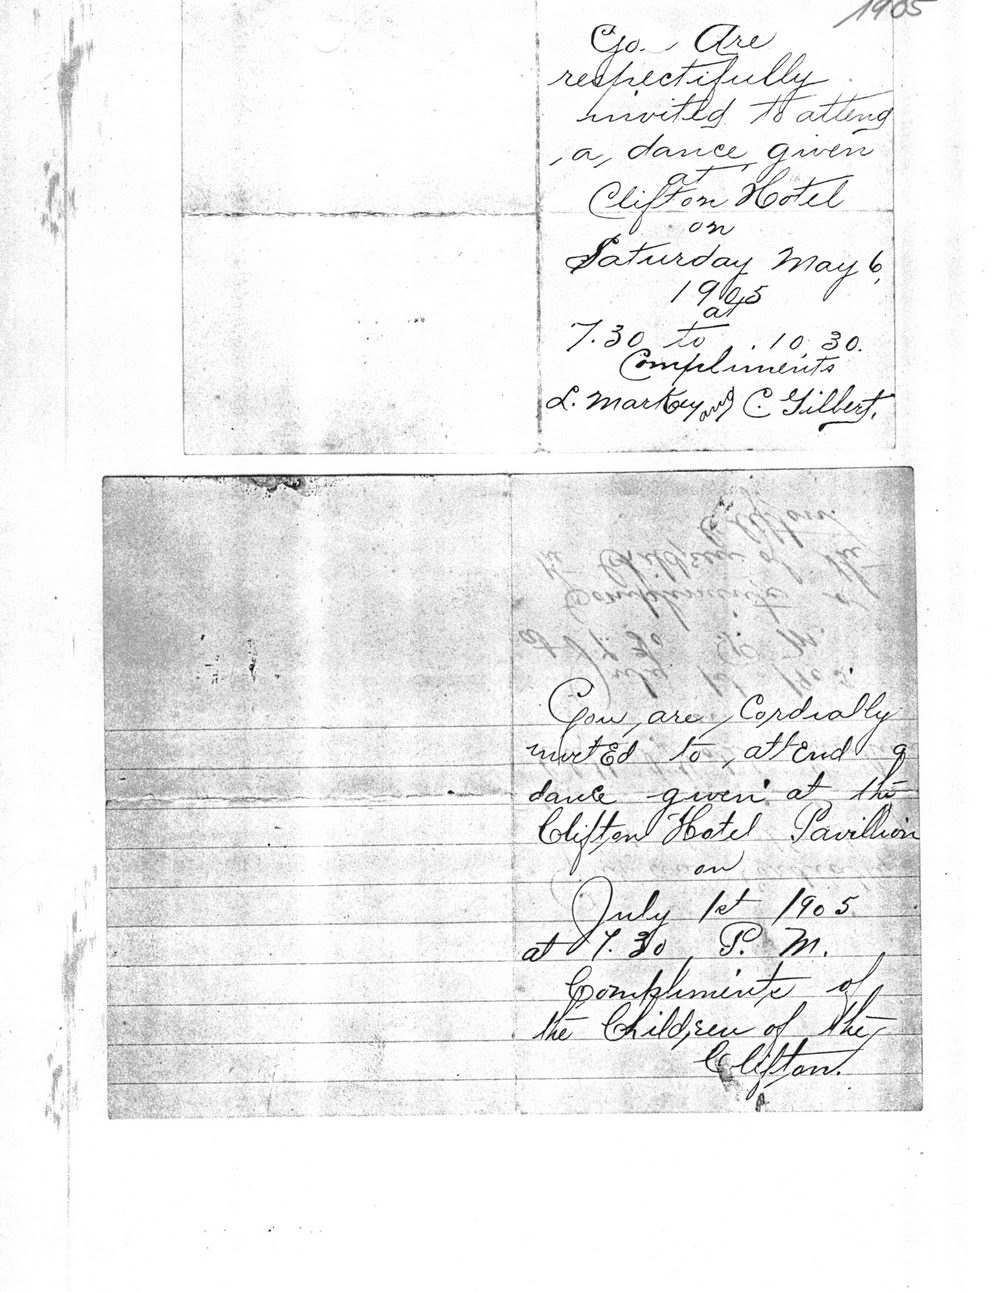 1905
Yo. Are
respectifully
invited to attend
a, dance, given
at
Clifton Hotel
on
Saturday May 6,
1905
at
7.30 to 10.30.
Compliments
L. Markey and C. Gilbert.
You are Cordially
invited to attend a
dance given at the
Clifton Hotel Pavillion
on
July 1st 1905
at 7.30 P. M.
Compliments of
the Children of the
Clifton.